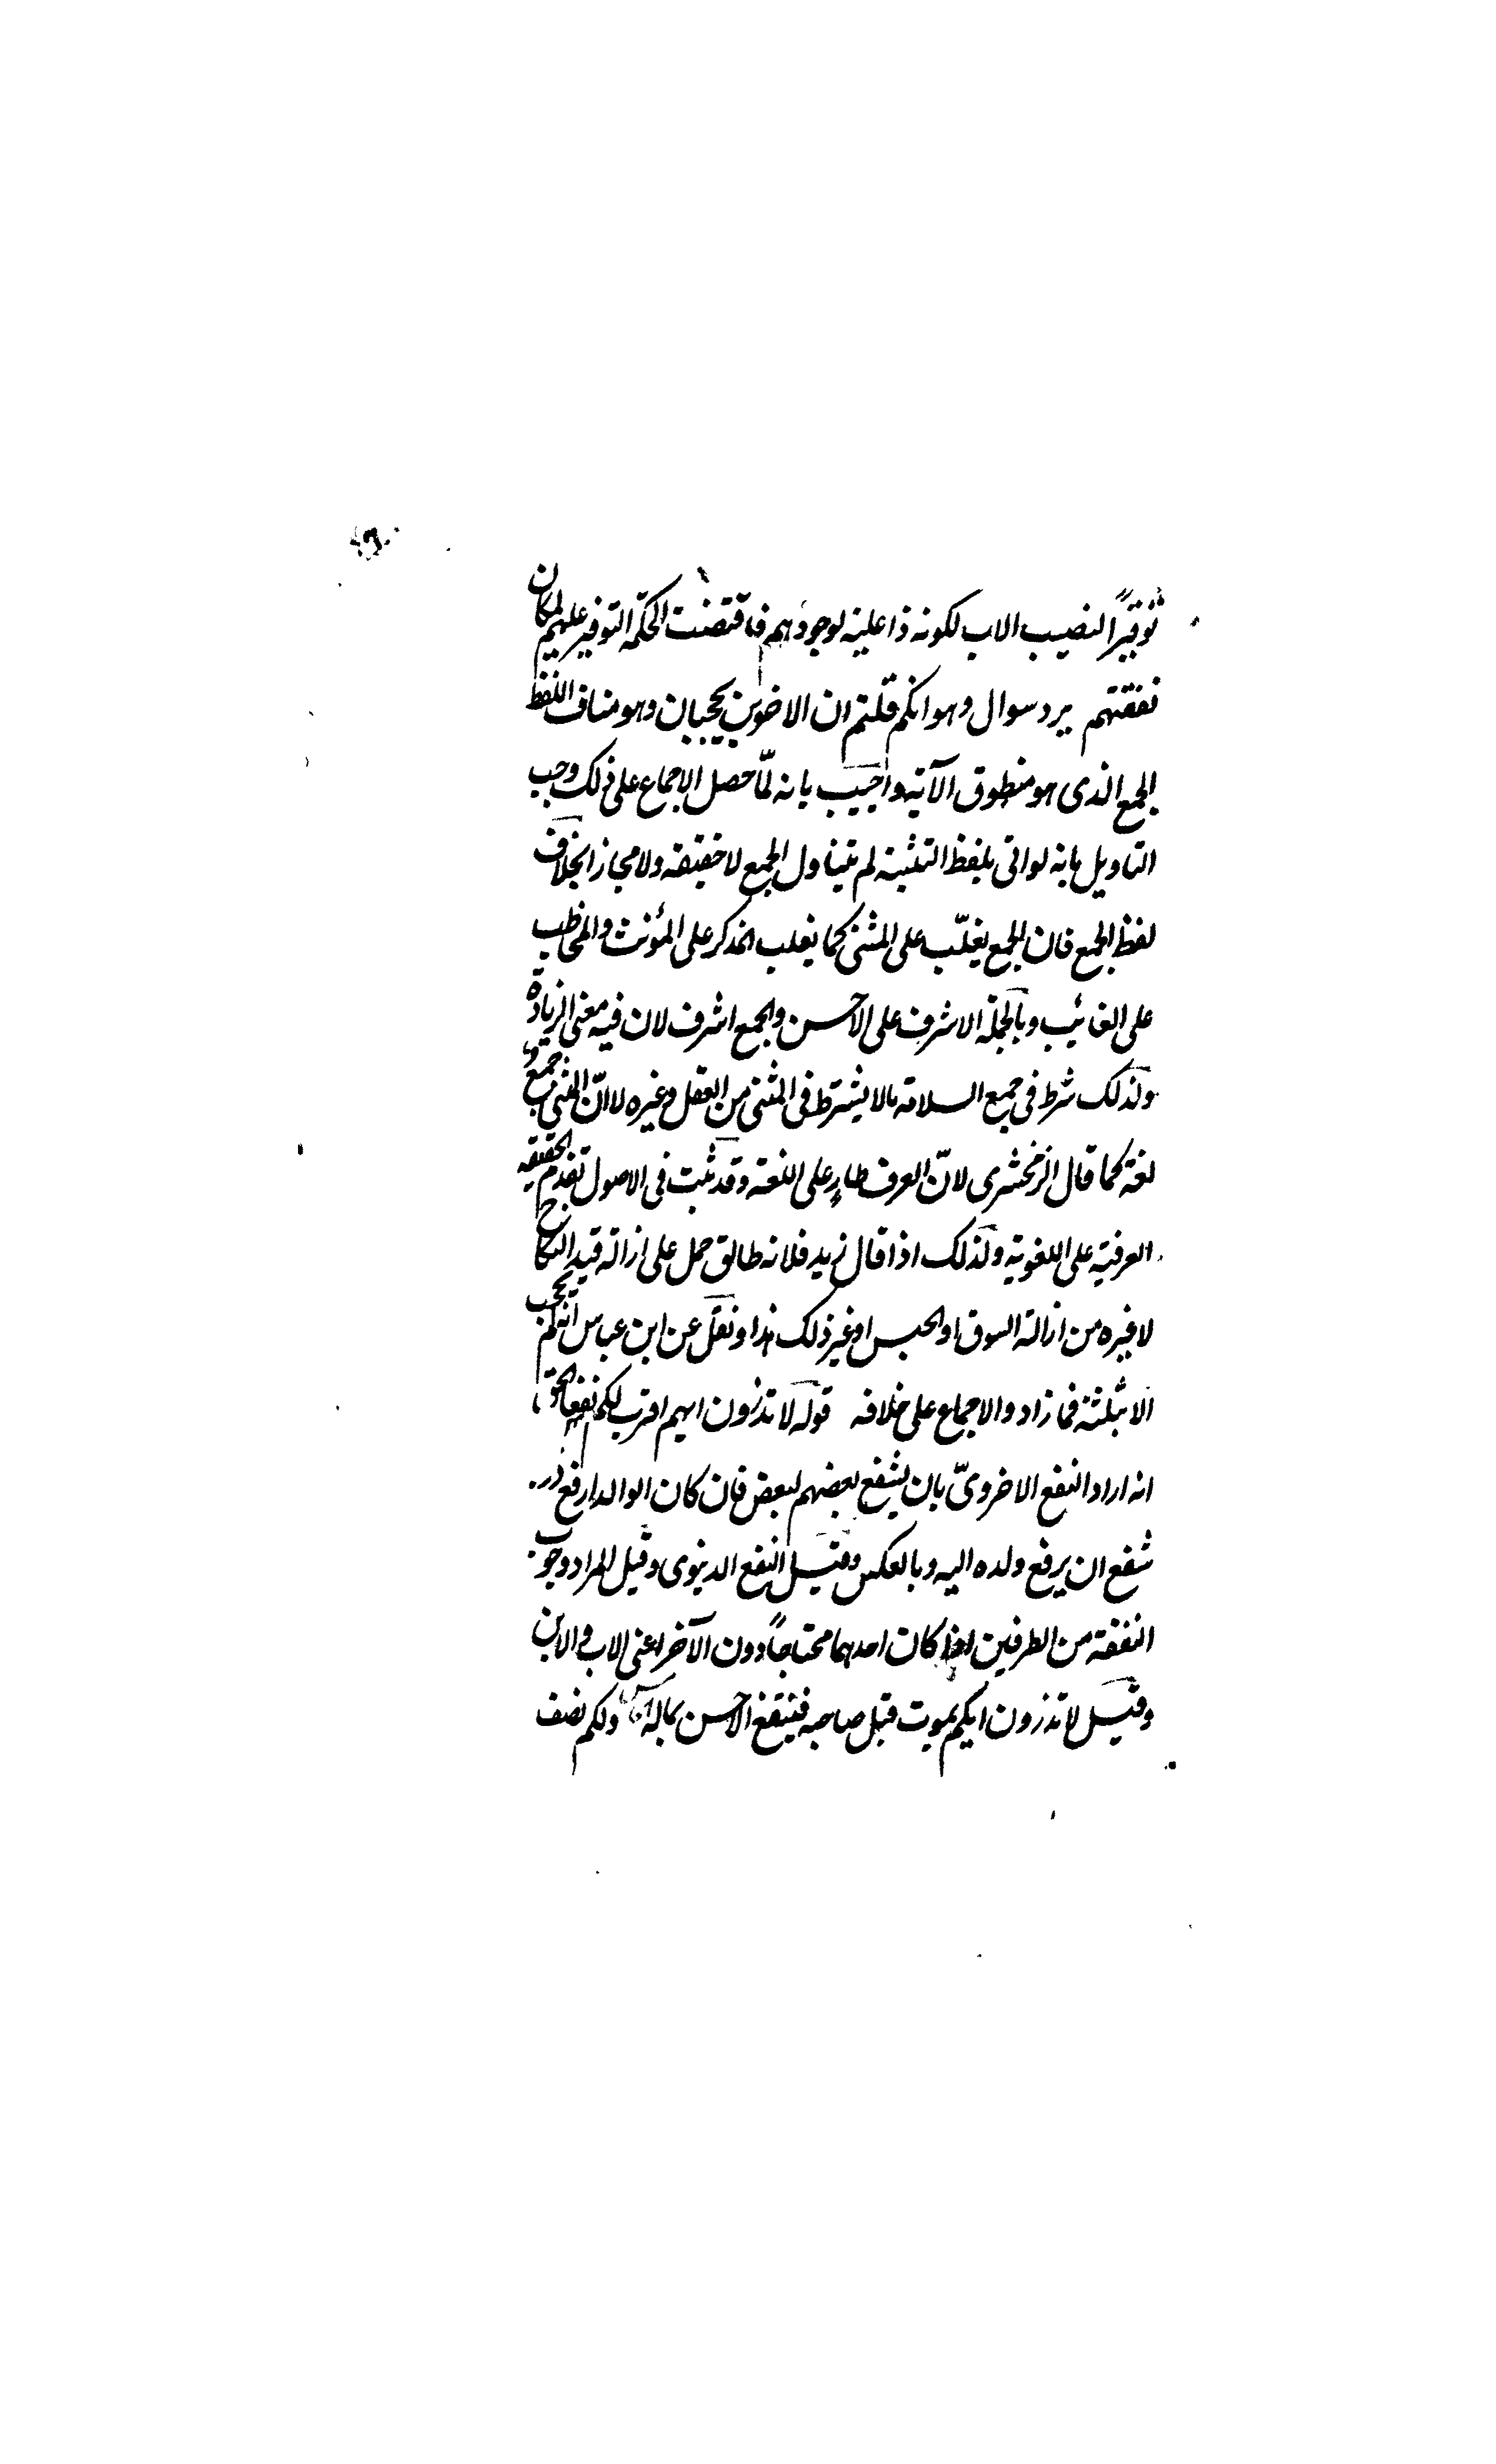 توفيراً لنصيب الاب لكونه ذا علية لوجودهم فاقتضت الحكمة التوفير عليهم لمكان
نفقتهم يرد سوال وهو انكم قلتم ان الاخوين يحجبان وهو مناف للفظ
الجمع الذى هو منطوق الآية واجيب بانه لمّا حصل الاجماع على ذلك وجب
التاويل بانه لو اتى بلفظ التثنية لم يتناول الجمع لا حقيقة ولا مجازا بخلاف
لفظ الجمع فان الجمع يغلّب على المثنى كما يغلب المذكر على المؤنث والمخاطب
على الغائب وبالجملة الاشرف على الاخس والجمع اشرف لان فيه معنى الزيادة
ولذلك شرط فى جمع السلامة ما لا يشترط فى المثنى من العقل وغيره لا انّ المثنى جمع
لغة كما قال الزمخشرى لانّ العرف طارٍ على اللغة وقد ثبت فى الاصول تقدم الحقيقة
العرفية على اللغوية ولذلك اذا قال زيد فلانة طالق حمل على ازالة قيد النكاح
لا غيره من ازالة السوق او الحبس او غير ذلك هذا ونقل عن ابن عباس انه لم يحجب
الا بثلثة فما زاد والاجماع على خلافه قوله لا تدرون ايهم اقرب لكم نفعا الحق
انه اراد النفع الاخروىّ بان يشفع بعضهم لبعض فان كان الوالد ارفع در
شفع ان يرفع ولده اليه وبالعكس وقيل النفع الدنيوى وقيل المراد وجوب
النفقة من الطرفين اذا كان احدهما محتاجاً دون الآخر اعنى الاب والابن
وقيل لا تدرون ايكم يموت قبل صاحبه فينتفع الاخس بماله ولكم نصف